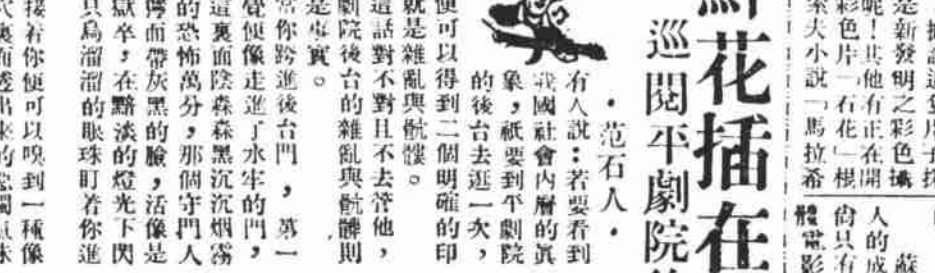 是新發明之彩色攝
呢！其他有正在開
彩色片「石花」根
索夫小說「馬拉希
蘇
人的成
尙只有
體電影
花插在
巡閱平劇院
．范石人．
有人說：若要看到
我國社會內層的眞
象，祇要到平劇院
的後台去逛一次，
便可以得到二個明確的印
就是雜亂與骯髒。
這話對不對且不去管他，
劇院後台的雜亂與骯髒則
是事實。
當你跨進後台門，第一
覺便像走進了水牢的門，
這裏面陰森森黑沉沉烟霧
的恐怖萬分，那個守門人
而帶灰黑的臉，活像是
獄卒，在黯淡的燈光下閃
只烏溜溜的眼珠盯着你進
接着你便可以嗅到一種像
裏面透出來的惡濁氣味